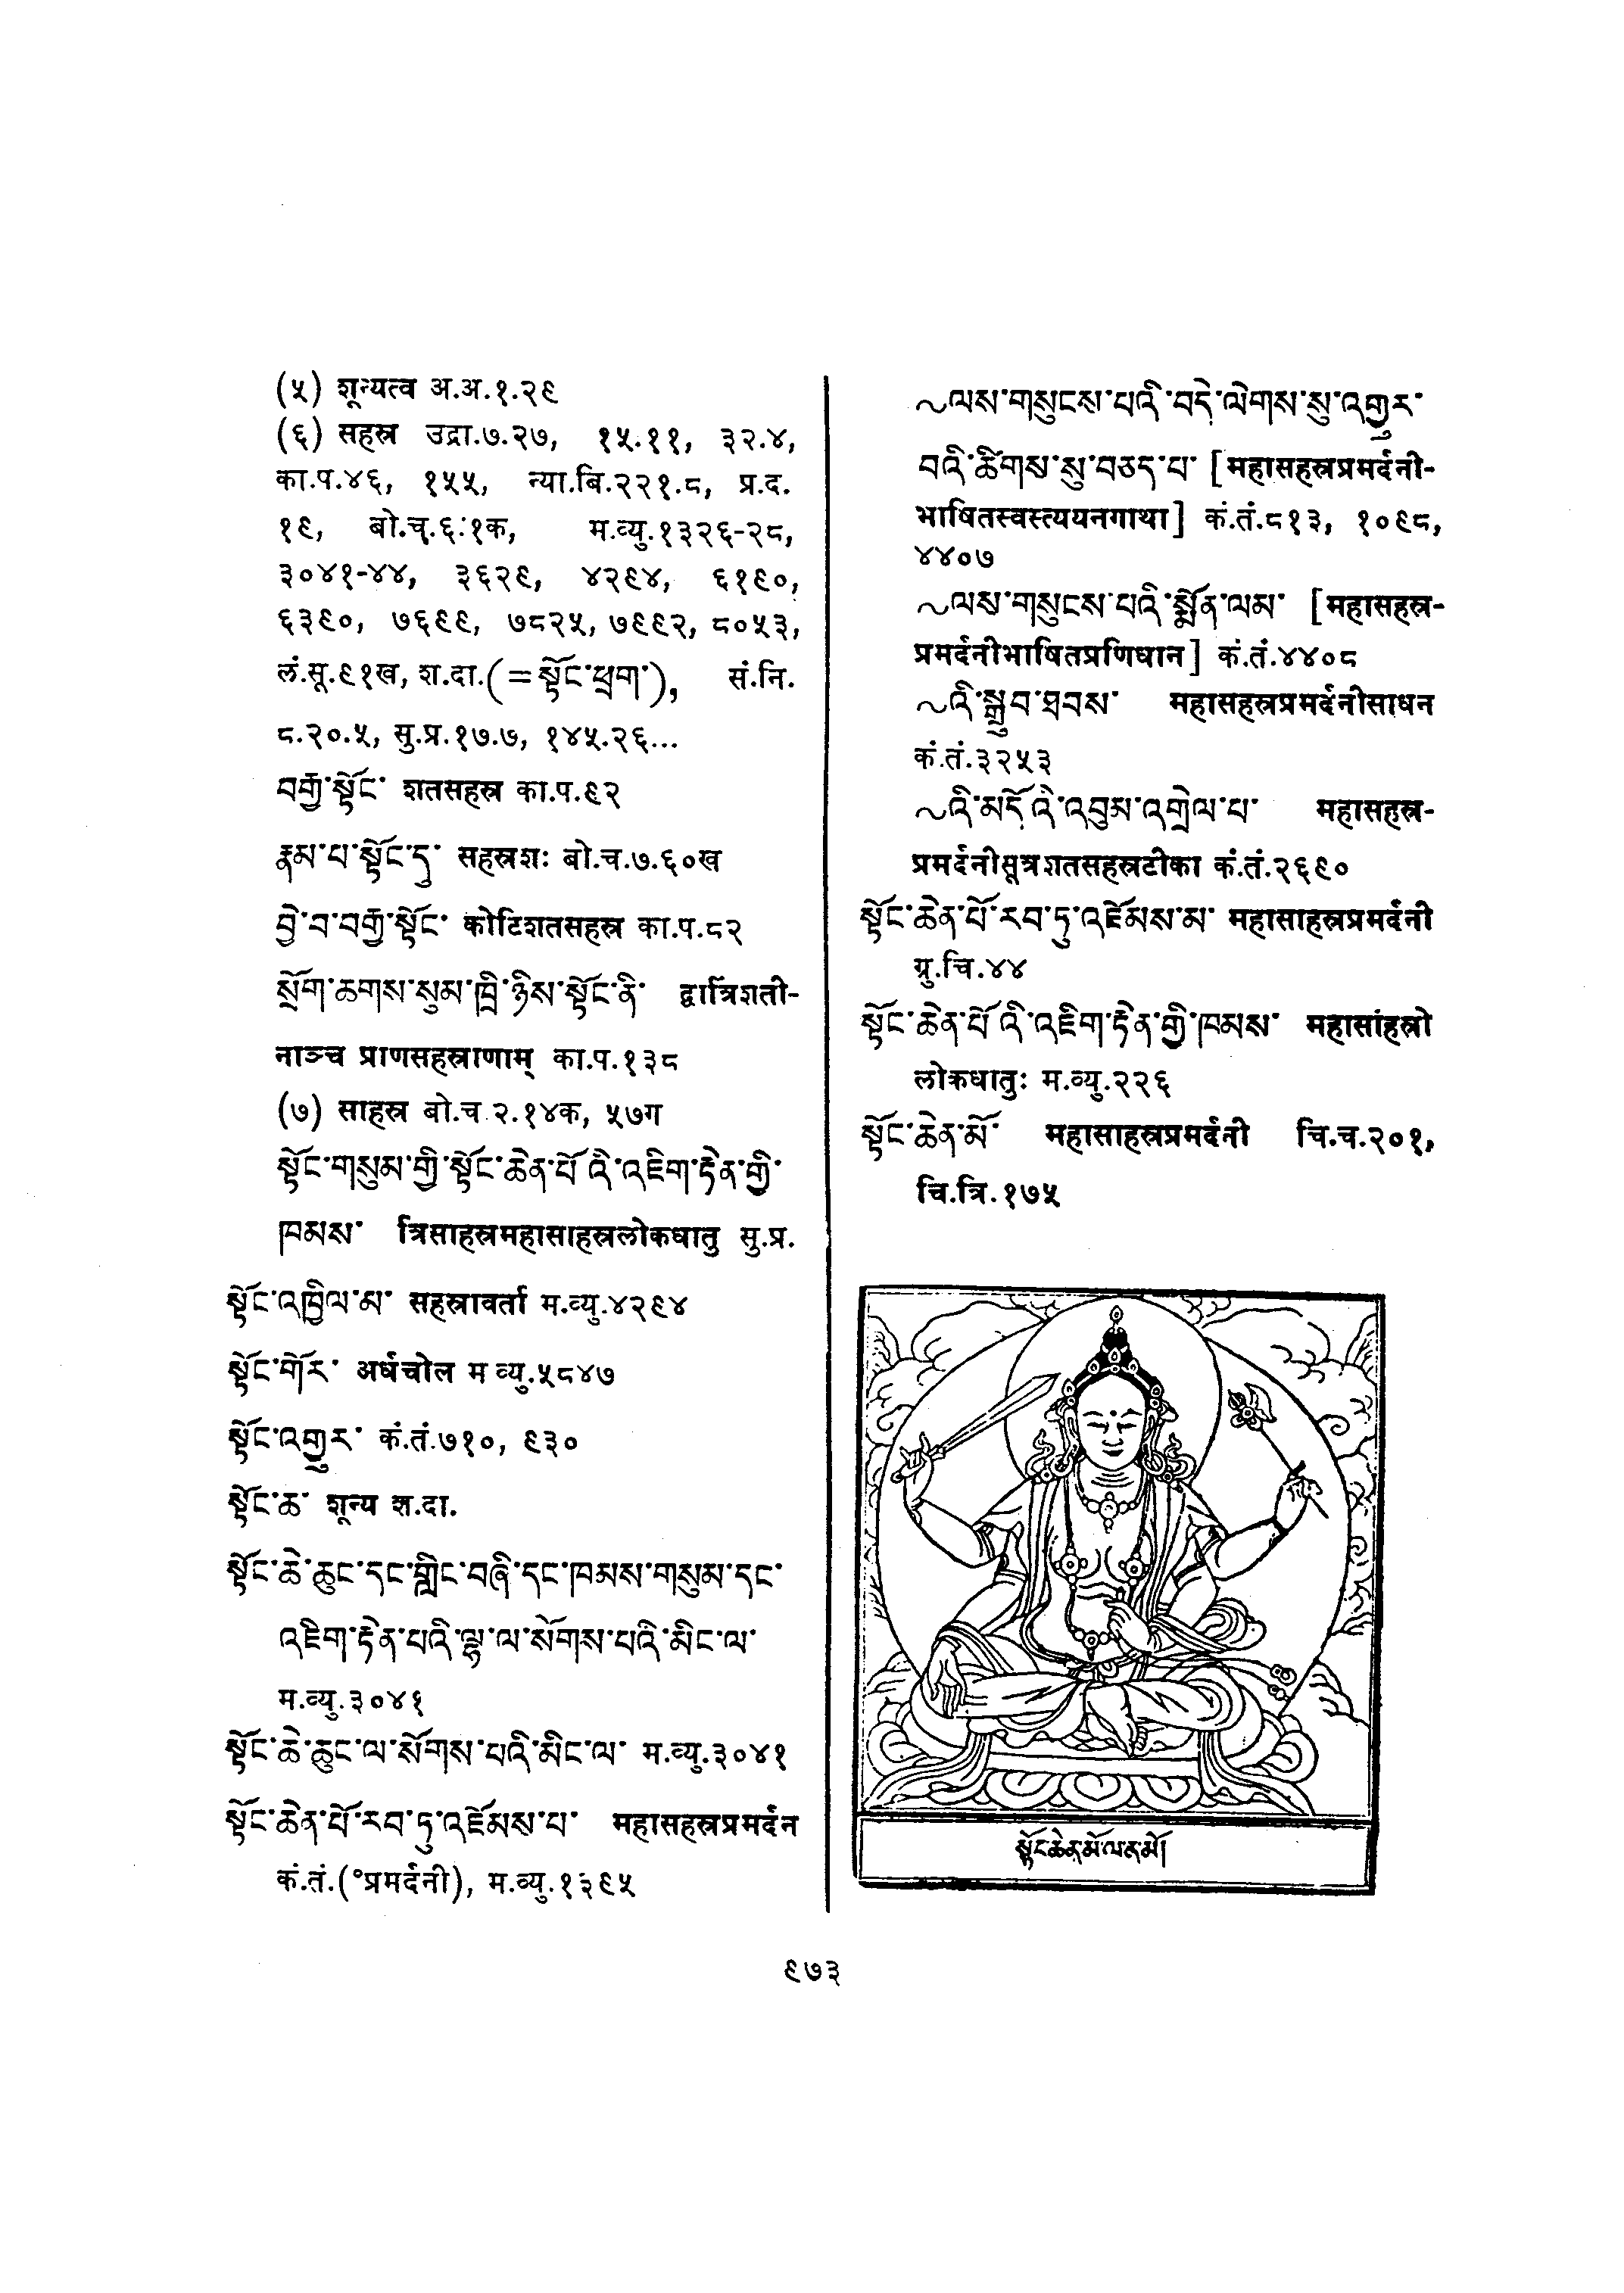 (५) शून्यत्व अ.अ.१.२९
(६) सहस्र उद्रा.७.२७, १५.११, ३२.४,
का.प.४६, १५५, न्या.बि.२२१.८, प्र.द.
१९, बो.च्.६ः१क, म.व्यु.१३२६-२८,
३०४१-४४, ३६२९, ४२९४, ६१९०,
६३९०, ७६९९, ७८२५, ७९९२, ८०५३,
लं.सू.९१ख, श.दा.(=སྟོང་ཕྲག་), सं.नि.
८.२०.५, सु.प्र.१७.७, १४५.२६...
བརྒྱ་སྟོང་ शतसहस्र का.प.९२
རྣམ་པ་སྟོང་དུ་ सहस्रशः बो.च.७.६०ख
བྱེ་བ་བརྒྱ་སྟོང་ कोटिशतसहस्र का.प.८२
སྲོག་ཆགས་སུམ་ཁྲི་ཉིས་སྟོང་ནི་ द्वात्रिंशती-
नाञ्च प्राणसहस्राणाम् का.प.१३८
(७) साहस्र बो.च.२.१४क, ५७ग
སྟོང་གསུམ་གྱི་སྟོང་ཆེན་པོའི་འཇིག་རྟེན་གྱི་
ཁམས་ त्रिसाहस्रमहासाहस्रलोकधातु सु.प्र.
སྟོང་འཁྱིལ་མ་ सहस्रावर्ता म.व्यु.४२९४
སྟོང་གོར་ अर्धचोल म व्यु.५८४७
སྟོང་འགྱུར་ कं.तं.७१०, ९३०
སྟོང་ཆ་ शून्य श.दा.
སྟོང་ཆེ་ཆུང་དང་གླིང་བཞི་དང་ཁམས་གསུམ་དང་
འཇིག་རྟེན་པའི་ལྷ་ལ་སོགས་པའི་མིང་ལ་
म.व्यु.३०४१
སྟོང་ཆེ་ཆུང་ལ་སོགས་པའི་མིང་ལ་ म.व्यु.३०४१
སྟོང་ཆེན་པོ་རབ་ཏུ་འཇོམས་པ་ महासहस्रप्रमर्दन
कं.तं.(°प्रमर्दनी), म.व्यु.१३९५
~ལས་གསུངས་པའི་བདེ་ལེགས་སུ་འགྱུར་
བའི་ཚིགས་སུ་བཅད་པ་ [महासहस्रप्रमर्दनी-
भाषितस्वस्त्ययनगाथा] कं.तं.८१३, १०९८,
४४०७
~ལས་གསུངས་པའི་སྨོན་ལམ་ [महासहस्र-
प्रमर्दनीभाषितप्रणिधान] कं.तं.४४०८
~འི་སྒྲུབ་ཐབས་ महासहस्रप्रमर्दनीसाधन
कं.तं.३२५३
~འི་མདོའི་འབུམ་འགྲེལ་པ་ महासहस्र-
प्रमर्दनीसूत्रशतसहस्रटीका कं.तं.२६९०
སྟོང་ཆེན་པོ་རབ་ཏུ་འཇོམས་མ་ महासाहस्रप्रमर्दनी
ग्रु.चि.४४
སྟོང་ཆེན་པོའི་འཇིག་རྟེན་གྱི་ཁམས་ महासांहस्रो
लोकधातुः म.व्यु.२२६
སྟོང་ཆེན་མོ་ महासाहस्रप्रमर्दनी चि.च.२०१,
चि.त्रि.१७५
སྟོང་ཆེན་མོ་ལ་ན་མོ།
९७३